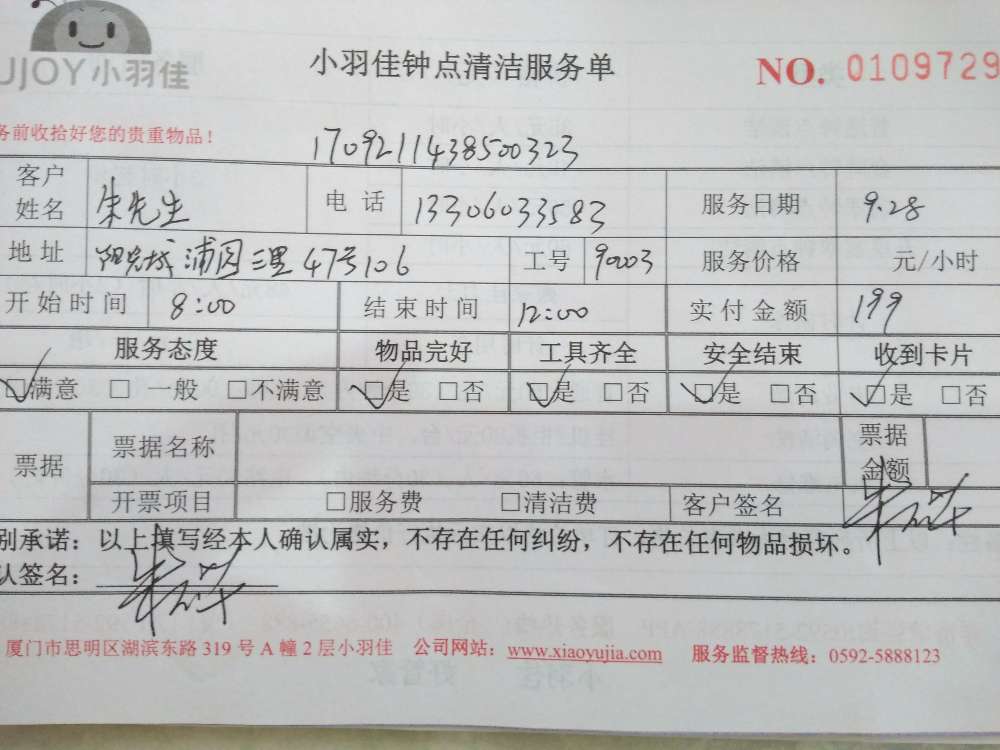 UJOY小羽佳
小羽佳钟点清洁服务单
NO. 0109729
务前收拾好您的贵重物品！
1709211438500323
客户姓名 朱先生 电话 13306033583 服务日期 9.28
地址 阳光城浦园三里47号106 工号 90003 服务价格 元/小时
开始时间 8:00 结束时间 12:00 实付金额 199
服务态度 物品完好 工具齐全 安全结束 收到卡片
☑满意 □一般 □不满意 ☑是 □否 ☑是 □否 ☑是 □否 ☑是 □否
票据 票据名称 票据金额
开票项目 □服务费 □清洁费 客户签名
别承诺：以上填写经本人确认属实，不存在任何纠纷，不存在任何物品损坏。
认签名：
厦门市思明区湖滨东路319号A幢2层小羽佳 公司网站：www.xiaoyujia.com 服务监督热线：0592-5888123